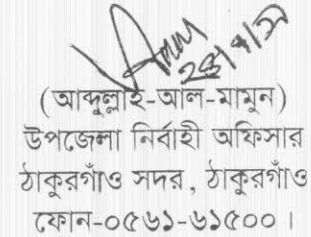 (আব্দুল্লাহ-আল-মামুন)
উপজেলা নির্বাহী অফিসার
ঠাকুরগাঁও সদর, ঠাকুরগাঁও
ফোন-০৫৬১-৬১৫০০।